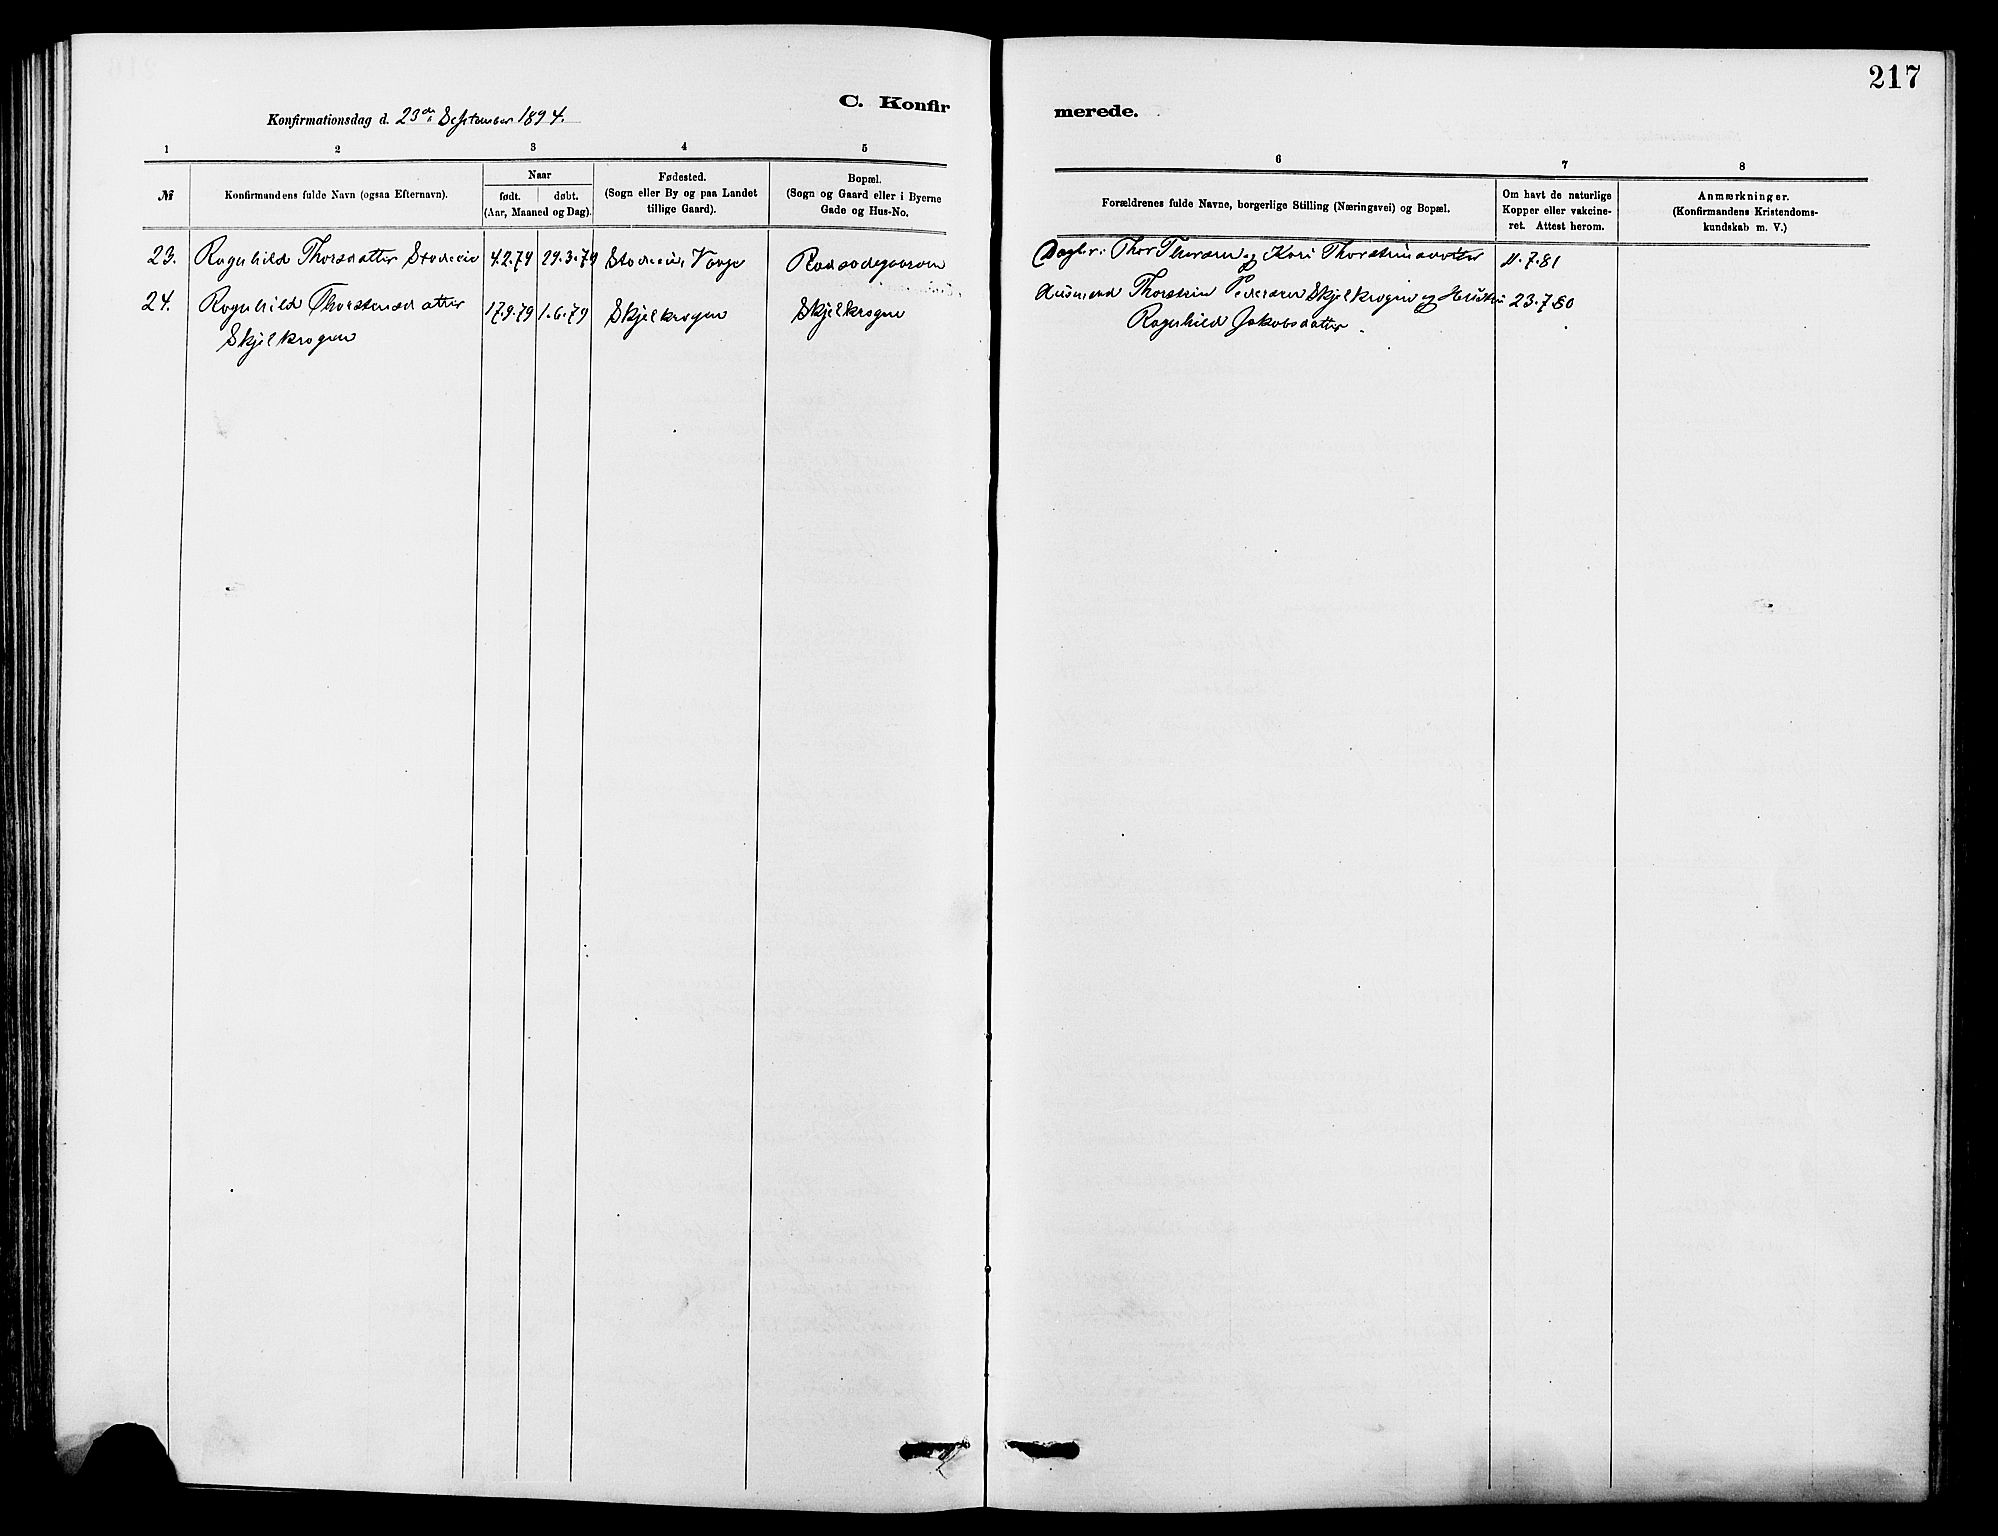 217
C. Konfir
merede.
Konfirmationsdag d. 23de September 1894.
1
2
3
4
5
6
7
8
№
Konfirmandens fulde Navn (ogsaa Efternavn).
Naar
født. døbt.
(Aar, Maaned og Dag).
Fødested.
(Sogn eller By og paa Landet
tillige Gaard).
Bopæl.
(Sogn og Gaard eller i Byerne
Gade og Hus-No.
Forældrenes fulde Navne, borgerlige Stilling (Næringsvei) og Bopæl.
Om havt de naturlige
Kopper eller vakcine-
ret. Attest herom.
Anmærkninger.
(Konfirmandens Kristendoms-
kundskab m. V.)
23. Ragnhild Thorsdatter 4.2.79 29.3.79
Dagbr: Thor Thorsen og Kari Thorsteinsdatter 11.7.81
24. Ragnhild Thorstensdatter 17.9.79 1.6.79 Skjelkrogen Skjelkrogen
Skjelkrogen
Husmand Thorstein Pedersen Skjelkrogen og Hustru 23.7.80
Ragnhild Jakobsdatter.